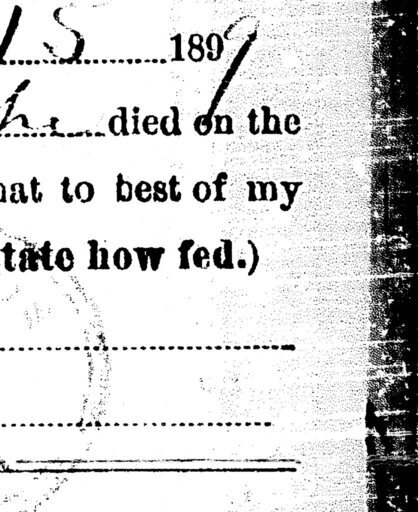 15 1899
he died on the
hat to best of my
tate how fed.)